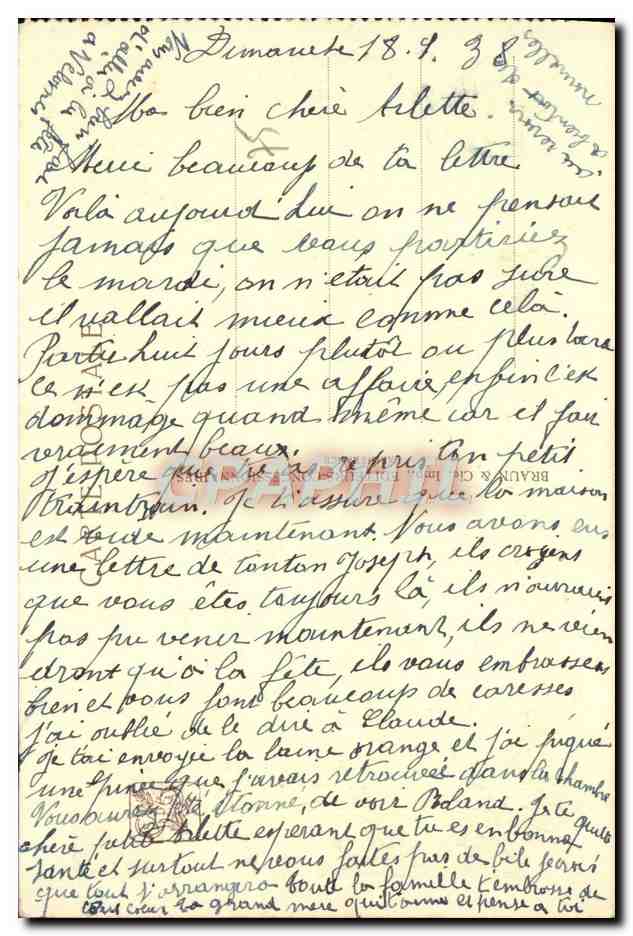 Dimanche 18.9.38
Ma bien chère Arlette.
Merci beaucoup de ta lettre
Voilà aujourd'hui on ne pensait
jamais que vous partiriez
le mardi, on n'etait pas sure
il vallait mieux comme celà.
Partir huit jours plutôt ou plus tard
ce n'est pas une affaire, enfin c'est
dommage quand même car il fait
vraiment beaux.
J'espère que tu as repris ton petit
traintrain. Je t'assure que la maison
est vide maintenant. Nous avons eus
une lettre de tonton Joseph, ils croyens
que vous êtes toujours là, ils n'auraies
pas pu venir maintenant, ils ne vien
dront qu'à la fête, ils vous embrassens
bien et vous font beaucoup de caresses
j'ai oublié de le dire à Claude.
Je t'ai envoyée la laine orange et j'ai piqué
une que j'avais retrouvée dans la chambre
Vous aurez été étonné, de voir Roland. Je te quitte
chèré petite Arlette esperant que tu es en bonne
santé et surtout ne vous faites pas de bile
que tout s'arrangera toute la famille t'embrasse de
tout coeur ta grand mere qui t'aime et pense a toi
Nous avons
d'aller à la
au revoir
a bientot de
nouvelles
CARTE POSTALE
BRAUN & Cie, Imp. EDITEURS-CONCESSIONNAIRES
CPARAMA